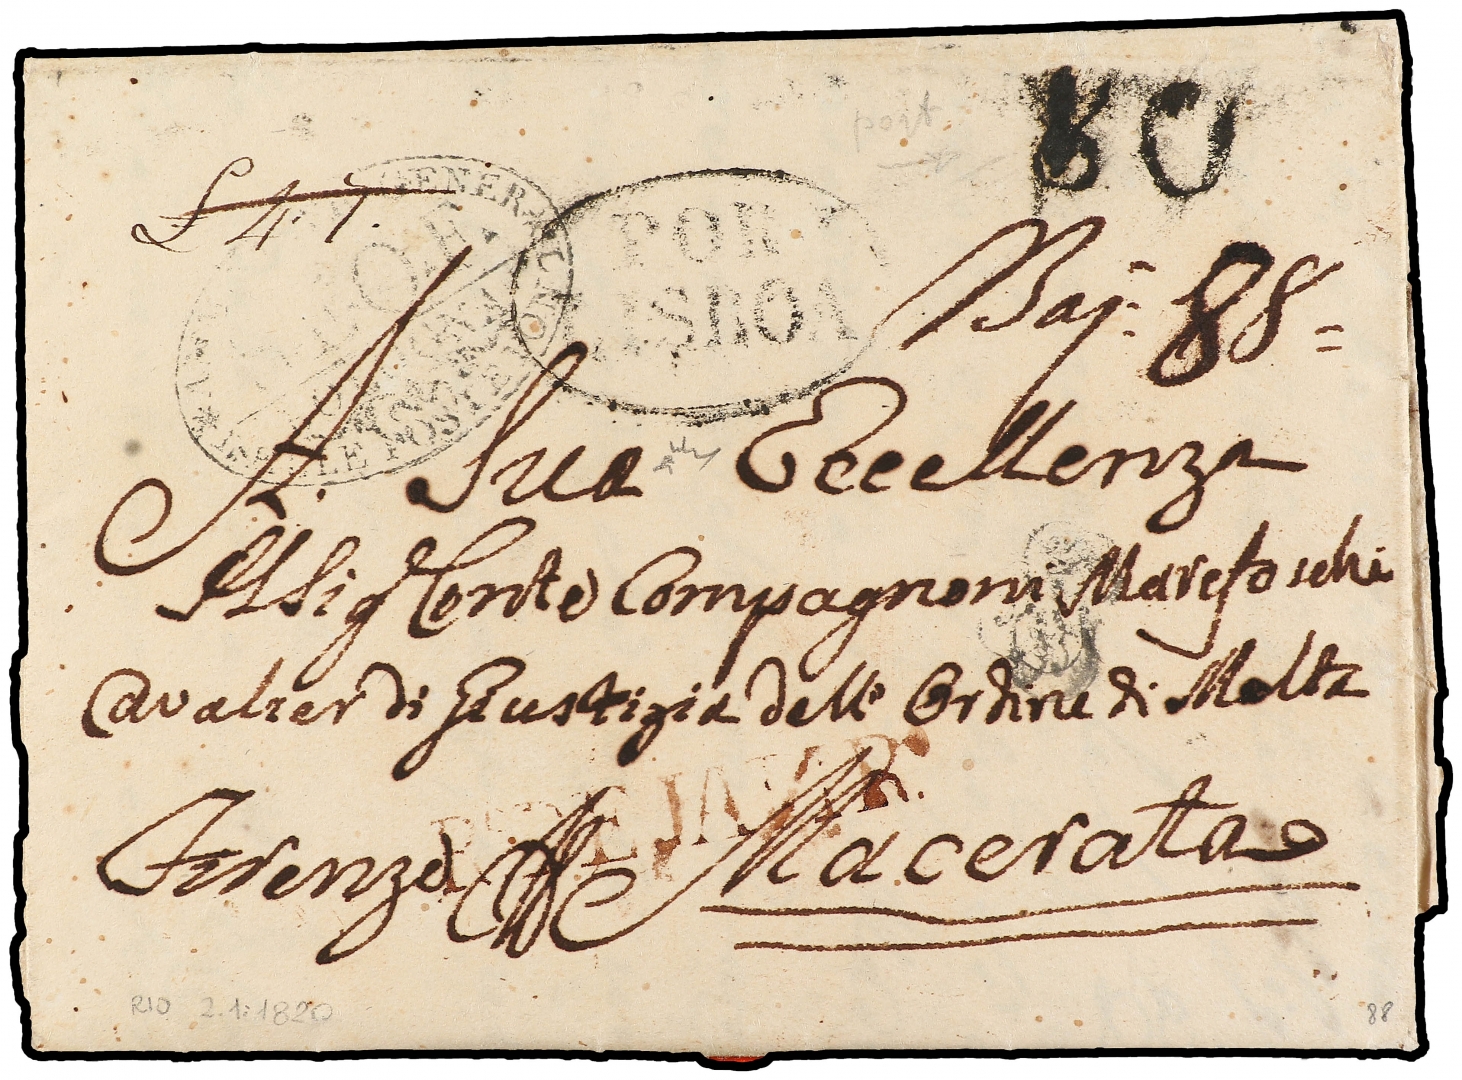 80
£ 4: 7.
POR
LISBOA
Baj: 88 =
A. Sua Eccellenza
Il Sig.r Conte Compagnoni Marefoschi
Cavalier di Giustizia dell' Ordine di Malta
Firenze Macerata
RIO 2.1.1820
88